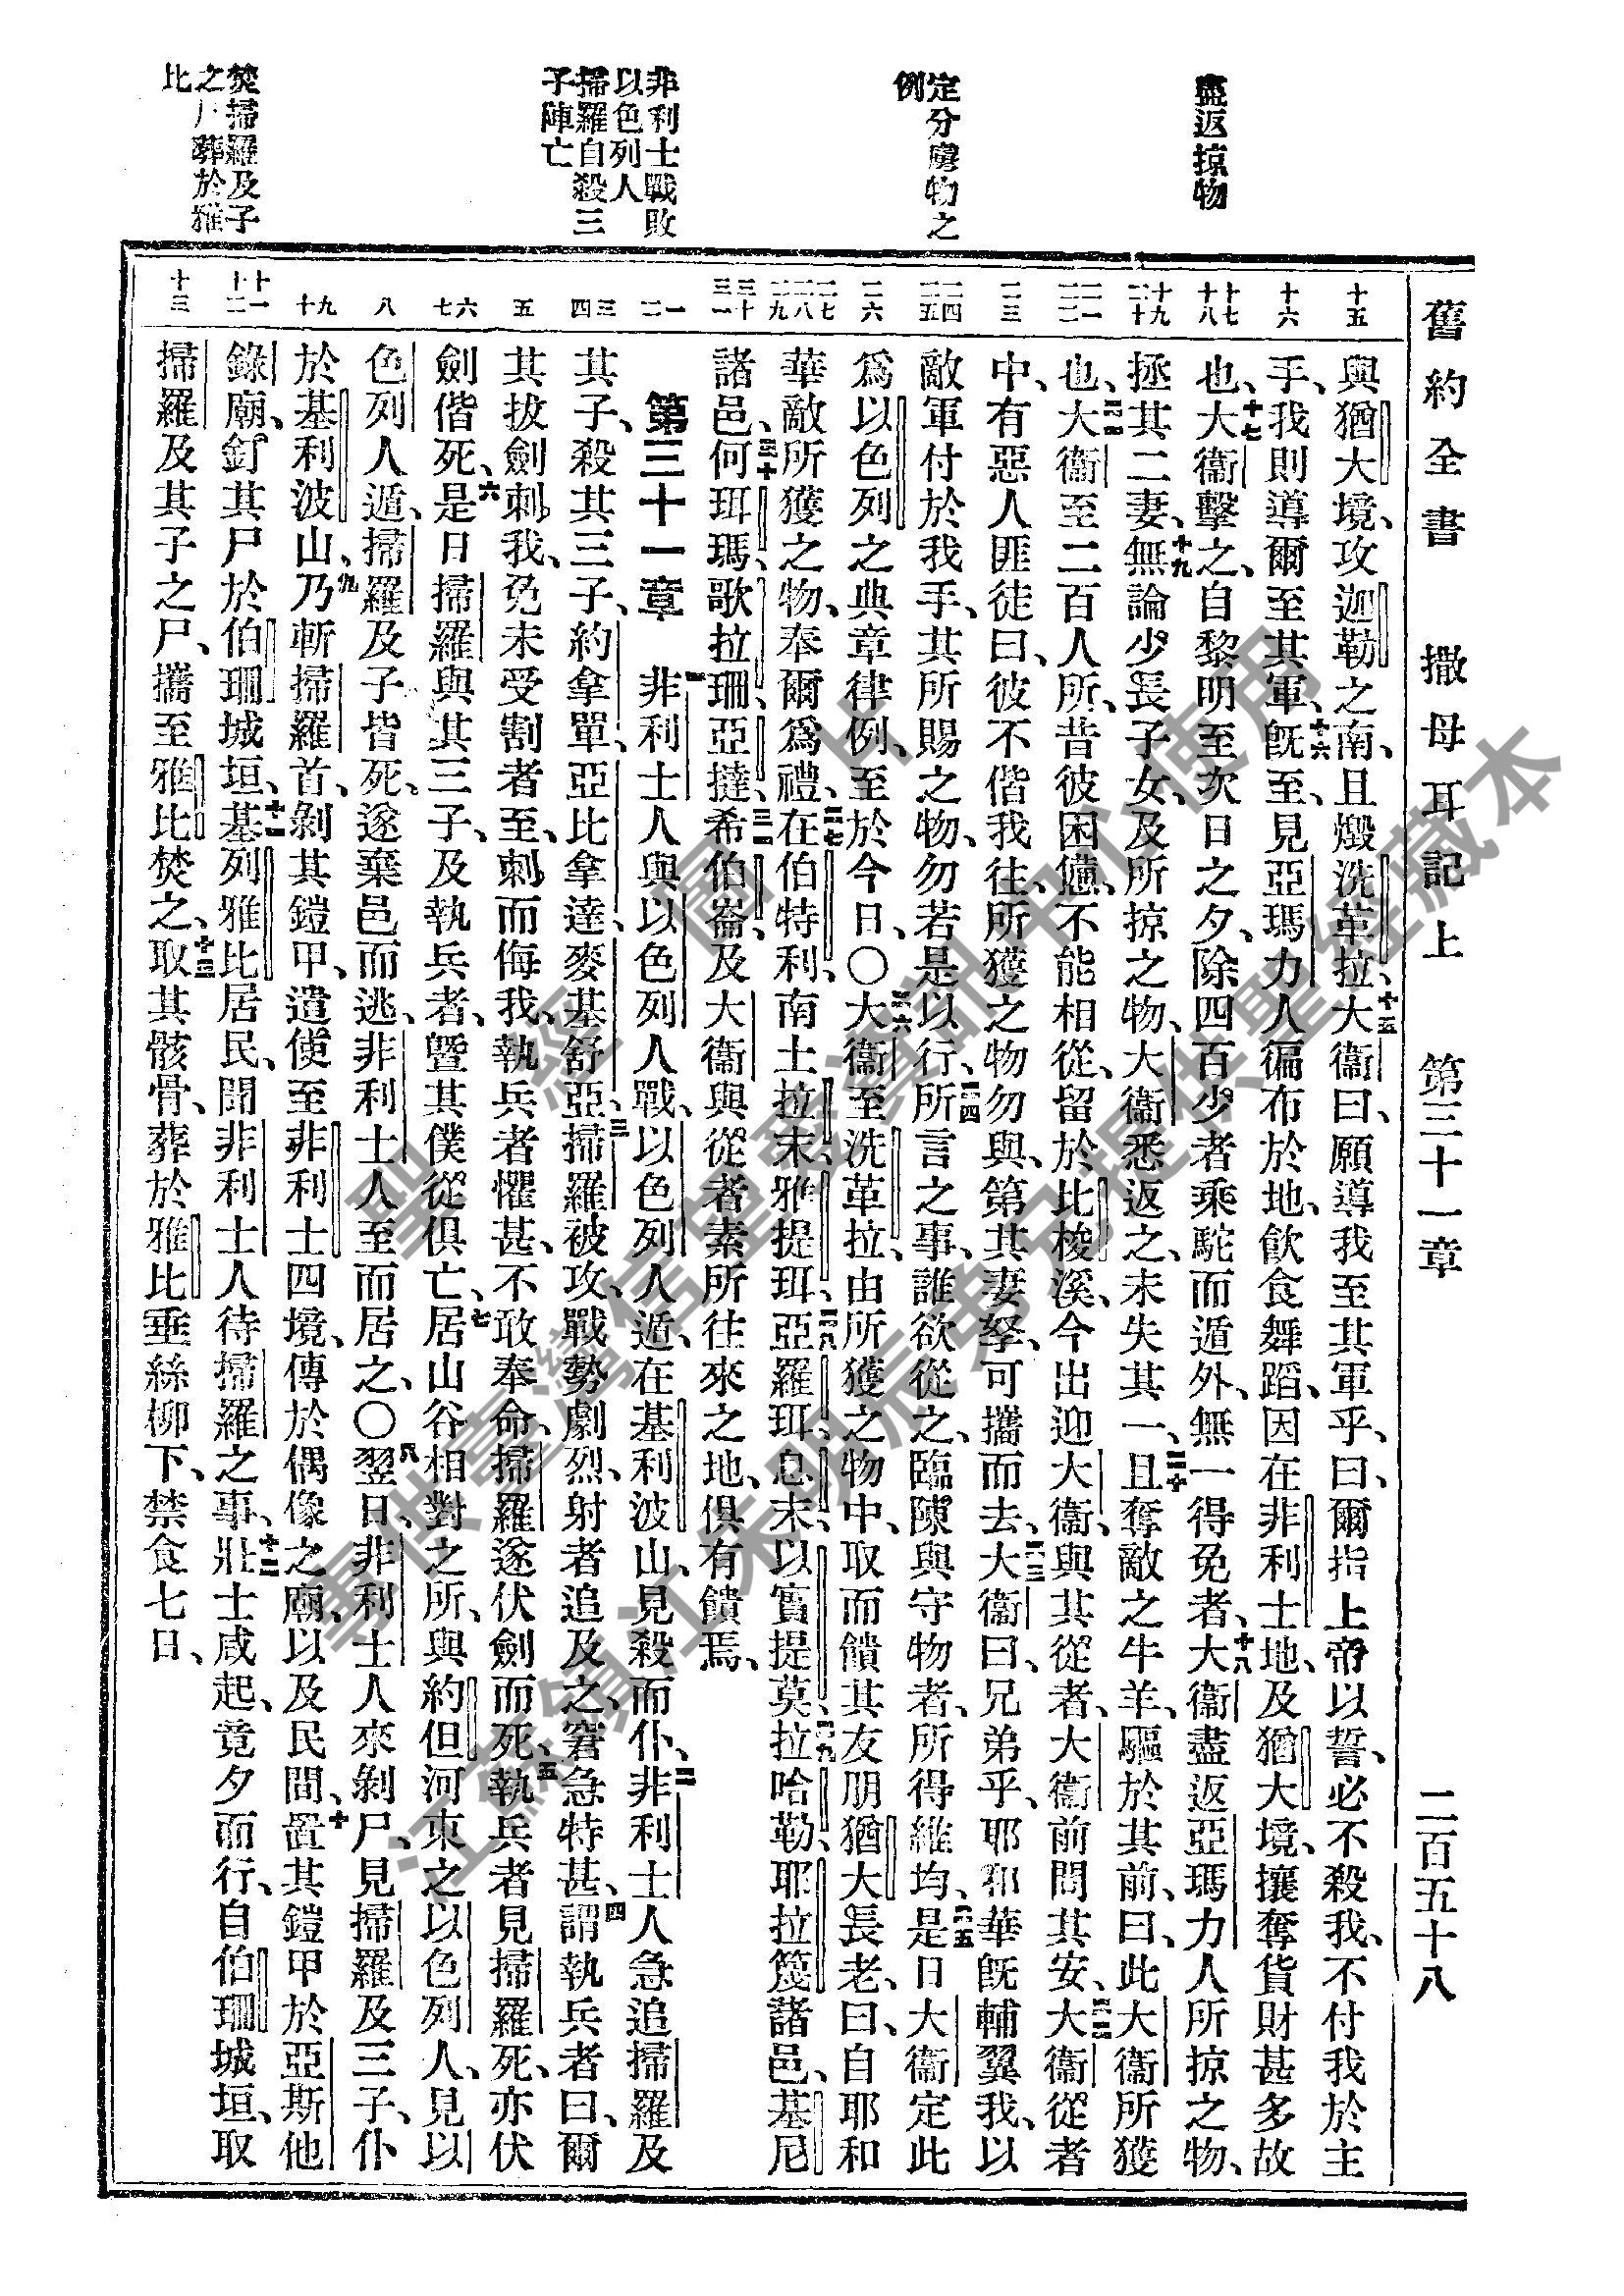 舊約全書　撒母耳記上　第三十一章　二百五十八
盡返掠物
定分虜物之
例
非利士戰敗
以色列人
掃羅自殺三
子陣亡
焚掃羅及子
之尸葬於雅
比
十五
十六
十七 十八
十九 二十
二一 二二
二三
二四 二五
二六
二七 二八 二九
三十 三一
一 二
三 四
五
六 七
八
九 十
十一 十二
十三
與猶大境、攻迦勒之南、且燬洗革拉、十五大衞曰、願導我至其軍乎、曰、爾指上帝以誓、必不殺我、不付我於主
手、我則導爾至其軍、十六旣至、見亞瑪力人徧布於地、飮食舞蹈、因在非利士地、及猶大境、攘奪貨財甚多故
也、十七大衞擊之、自黎明至次日之夕、除四百少者乘駝而遁外、無一得免者、十八大衞盡返亞瑪力人所掠之物、
拯其二妻、十九無論少長子女、及所掠之物、大衞悉返之、未失其一、二十且奪敵之牛羊、驅於其前、曰、此大衞所獲
也、二一大衞至二百人所、昔彼困憊、不能相從、留於比梭溪、今出迎大衞、與其從者、大衞前問其安、二二大衞從者
中、有惡人匪徒曰、彼不偕我往、所獲之物勿與、第其妻孥、可攜而去、二三大衞曰、兄弟乎、耶和華旣輔翼我、以
敵軍付於我手、其所賜之物、勿若是以行、二四所言之事、誰欲從之、臨陳與守物者、所得維均、二五是日大衞定此
爲以色列之典章律例、至於今日、○二六大衞至洗革拉、由所獲之物中、取而饋其友朋猶大長老、曰、自耶和
華敵所獲之物、奉爾爲禮、二七在伯特利、南土拉末、雅提珥、二八亞羅珥、息末、以實提莫、二九拉哈勒、耶拉篾諸邑、基尼
諸邑、三十何珥瑪、歌拉珊、亞撻、三一希伯崙、及大衞與從者素所往來之地、俱有饋焉、
第三十一章　一非利士人與以色列人戰、以色列人遁、在基利波山、見殺而仆、二非利士人急追掃羅及
其子、殺其三子、約拿單、亞比拿達、麥基舒亞、三掃羅被攻、戰勢劇烈、射者追及之、窘急特甚、四謂執兵者曰、爾
其拔劍刺我、免未受割者至、刺而侮我、執兵者懼甚、不敢奉命、掃羅遂伏劍而死、五執兵者見掃羅死、亦伏
劍偕死、六是日掃羅與其三子、及執兵者、曁其僕從俱亡、七居山谷相對之所、與約但河東之以色列人、見以
色列人遁、掃羅及子皆死、遂棄邑而逃、非利士人至而居之、○八翌日、非利士人來剝尸、見掃羅及三子、仆
於基利波山、九乃斬掃羅首、剝其鎧甲、遣使至非利士四境、傳於偶像之廟、以及民間、十置其鎧甲於亞斯他
錄廟、釘其尸於伯珊城垣、十一基列雅比居民、聞非利士人待掃羅之事、十二壯士咸起、竟夕而行、自伯珊城垣、取
掃羅及其子之尸、攜至雅比焚之、十三取其骸骨、葬於雅比垂絲柳下、禁食七日、
聖經圖片
專供臺灣信望愛資訊中心使用
江蘇鎮江朱明辰弟兄提供聖經藏本